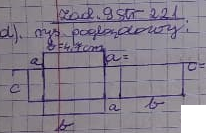 zad. 9 str 221
d). rys poglądowy:
b = 4,7 cm
a a= c=
c
a b
b